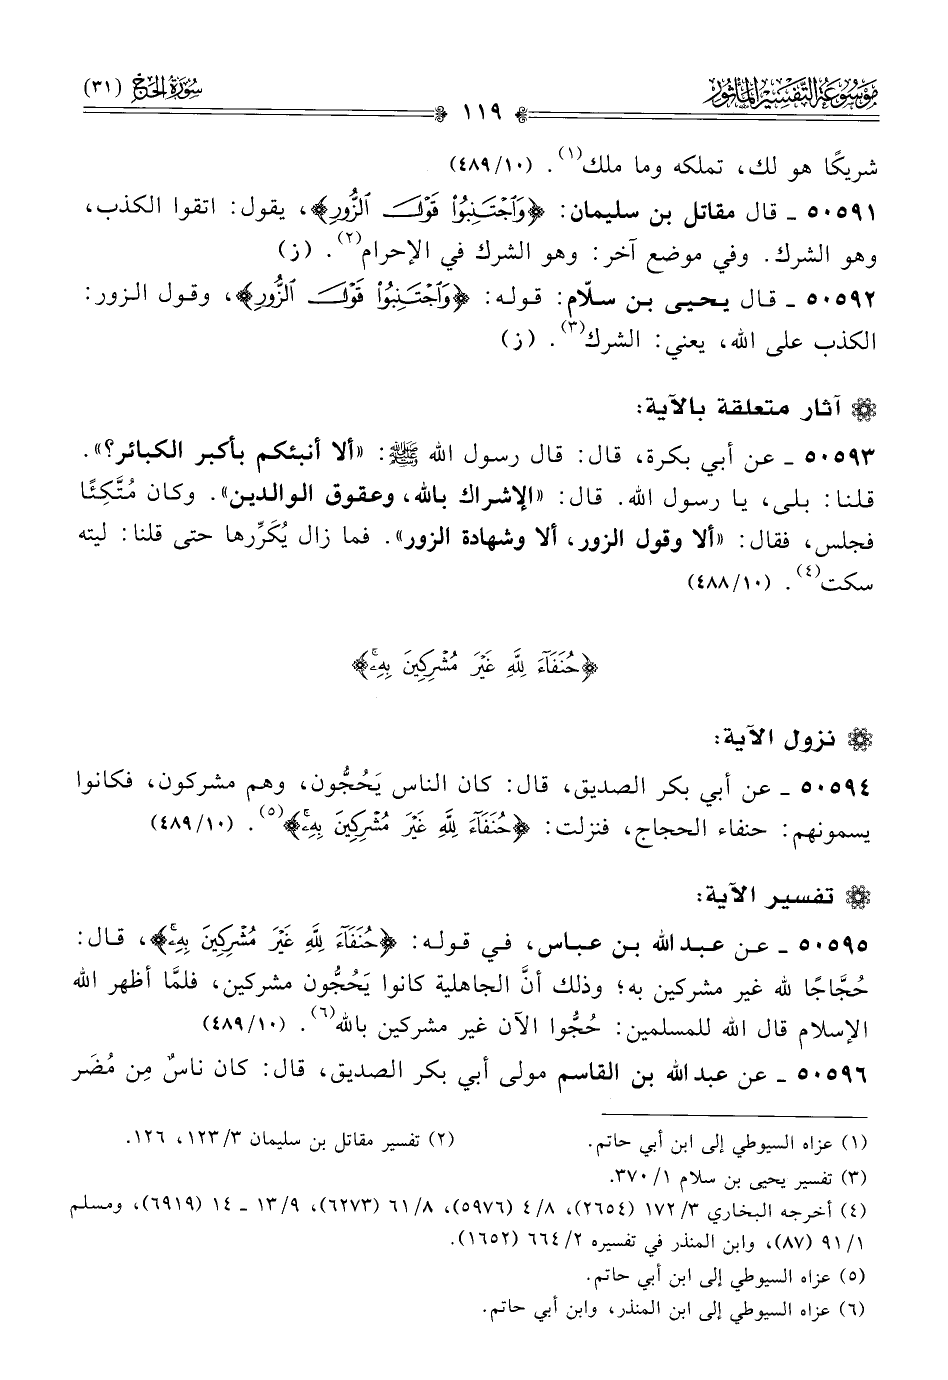 مَوْسُوعَة التَّفْسِير المَأْثُور
١١٩
سُورَةُ الحَجّ (٣١)
شريكًا هو لك، تملكه وما ملك(١). (١٠/٤٨٩)
٥٠٥٩١ ـ قال مقاتل بن سليمان: ﴿وَٱجْتَنِبُوا۟ قَوْلَ ٱلزُّورِ﴾، يقول: اتقوا الكذب،
وهو الشرك. وفي موضع آخر: وهو الشرك في الإحرام(٢). (ز)
٥٠٥٩٢ ـ قال يحيى بن سلّام: قوله: ﴿وَٱجْتَنِبُوا۟ قَوْلَ ٱلزُّورِ﴾، وقول الزور:
الكذب على الله، يعني: الشرك(٣). (ز)
آثار متعلقة بالآية:
٥٠٥٩٣ ـ عن أبي بكرة، قال: قال رسول الله ﷺ: «ألا أنبئكم بأكبر الكبائر؟».
قلنا: بلى، يا رسول الله. قال: «الإشراك بالله، وعقوق الوالدين». وكان مُتَّكِئًا
فجلس، فقال: «ألا وقول الزور، ألا وشهادة الزور». فما زال يُكَرِّرها حتى قلنا: ليته
سكت(٤). (١٠/٤٨٨)
﴿حُنَفَآءَ لِلَّهِ غَيْرَ مُشْرِكِينَ بِهِۦۚ﴾
نزول الآية:
٥٠٥٩٤ ـ عن أبي بكر الصديق، قال: كان الناس يَحُجُّون، وهم مشركون، فكانوا
يسمونهم: حنفاء الحجاج، فنزلت: ﴿حُنَفَآءَ لِلَّهِ غَيْرَ مُشْرِكِينَ بِهِۦۚ﴾(٥). (١٠/٤٨٩)
تفسير الآية:
٥٠٥٩٥ ـ عن عبد الله بن عباس، في قوله: ﴿حُنَفَآءَ لِلَّهِ غَيْرَ مُشْرِكِينَ بِهِۦۚ﴾، قال:
حُجَّاجًا لله غير مشركين به؛ وذلك أنَّ الجاهلية كانوا يَحُجُّون مشركين، فلمَّا أظهر الله
الإسلام قال الله للمسلمين: حُجُّوا الآن غير مشركين بالله(٦). (١٠/٤٨٩)
٥٠٥٩٦ ـ عن عبد الله بن القاسم مولى أبي بكر الصديق، قال: كان ناسٌ مِن مُضَر
(١) عزاه السيوطي إلى ابن أبي حاتم. (٢) تفسير مقاتل بن سليمان ١٢٣/٣، ١٢٦.
(٣) تفسير يحيى بن سلام ٣٧٠/١.
(٤) أخرجه البخاري ١٧٢/٣ (٢٦٥٤)، ٤/٨ (٥٩٧٦)، ٦١/٨ (٦٢٧٣)، ١٣/٩ ـ ١٤ (٦٩١٩)، ومسلم
٩١/١ (٨٧)، وابن المنذر في تفسيره ٦٦٤/٢ (١٦٥٢).
(٥) عزاه السيوطي إلى ابن أبي حاتم.
(٦) عزاه السيوطي إلى ابن المنذر، وابن أبي حاتم.